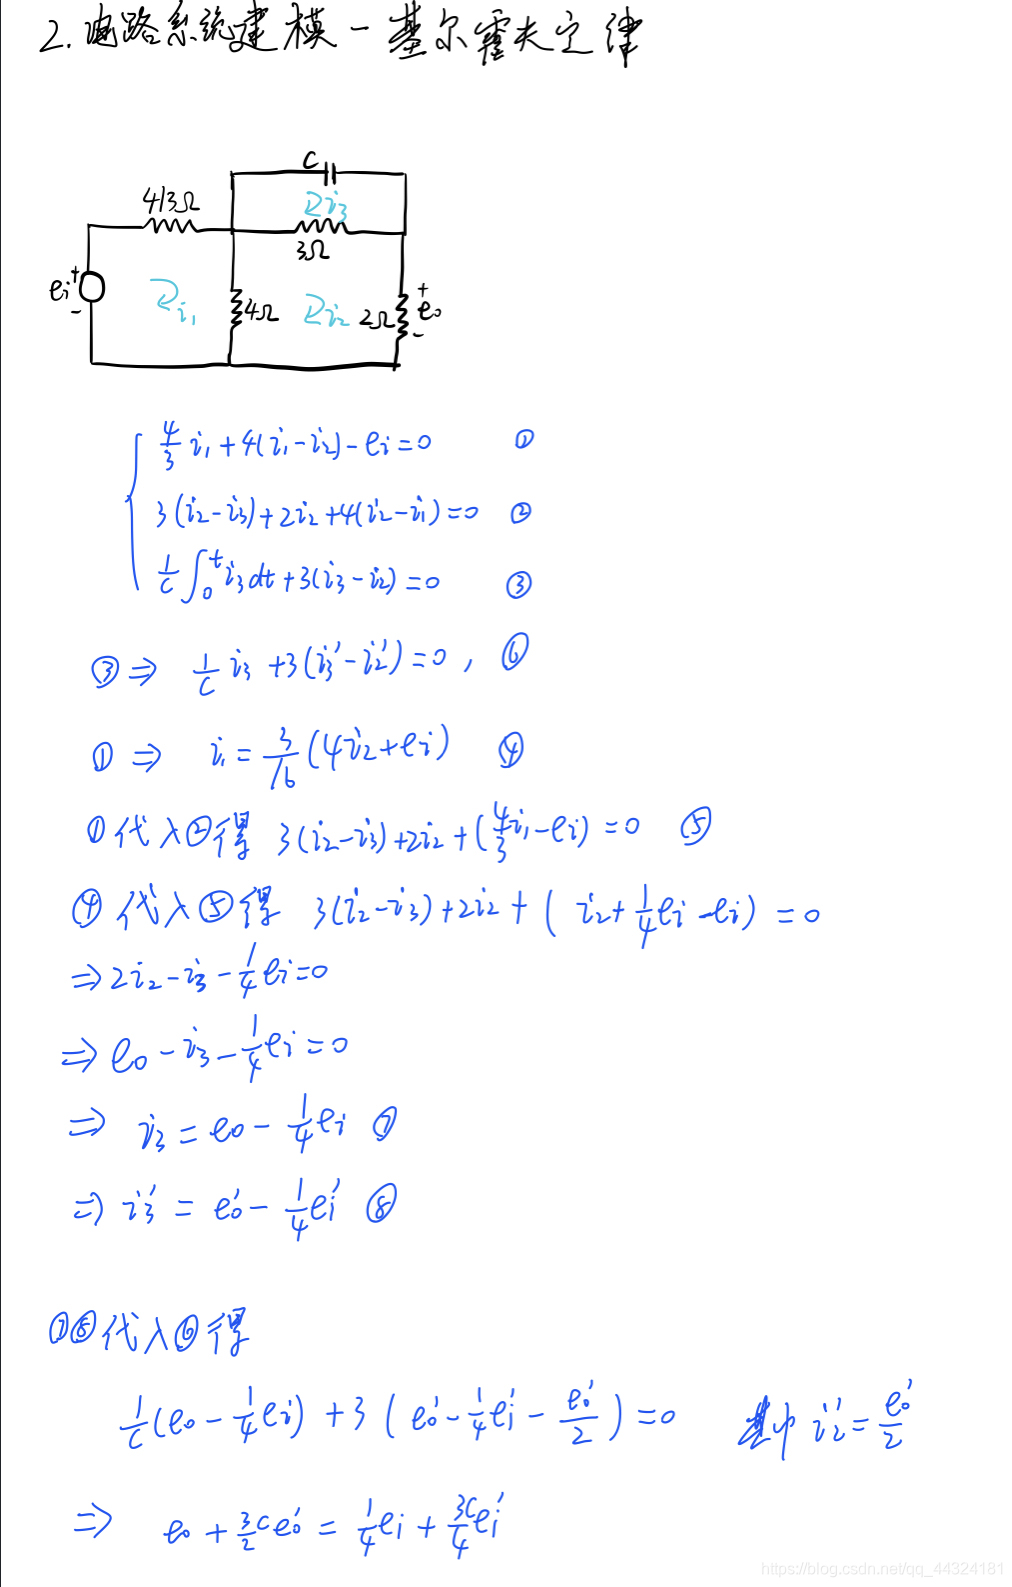 2. 电路系统建模 - 基尔霍夫定律
C
4/3Ω
i₃
3Ω
eᵢ + -
i₁
4Ω
i₂
2Ω
+ e₀ -
4/3 i₁ + 4(i₁ - i₂) - eᵢ = 0 ①
3(i₂ - i₃) + 2i₂ + 4(i₂ - i₁) = 0 ②
1/C ∫₀ᵗ i₃dt + 3(i₃ - i₂) = 0 ③
③ ⇒ 1/C i₃ + 3(i₃' - i₂') = 0 , ⑥
① ⇒ i₁ = 3/16 (4i₂ + eᵢ) ④
①代入②得 3(i₂ - i₃) + 2i₂ + (4/3 i₁ - eᵢ) = 0 ⑤
④代入⑤得 3(i₂ - i₃) + 2i₂ + ( i₂ + 1/4 eᵢ - eᵢ) = 0
⇒ 2i₂ - i₃ - 1/4 eᵢ = 0
⇒ e₀ - i₃ - 1/4 eᵢ = 0
⇒ i₃ = e₀ - 1/4 eᵢ ⑦
⇒ i₃' = e₀' - 1/4 eᵢ' ⑧
⑦⑧代入⑥得
1/C (e₀ - 1/4 eᵢ) + 3 ( e₀' - 1/4 eᵢ' - e₀'/2 ) = 0 其中 i₂' = e₀'/2
⇒ e₀ + 3/2 C e₀' = 1/4 eᵢ + 3C/4 eᵢ'
https://blog.csdn.net/qq_44324181